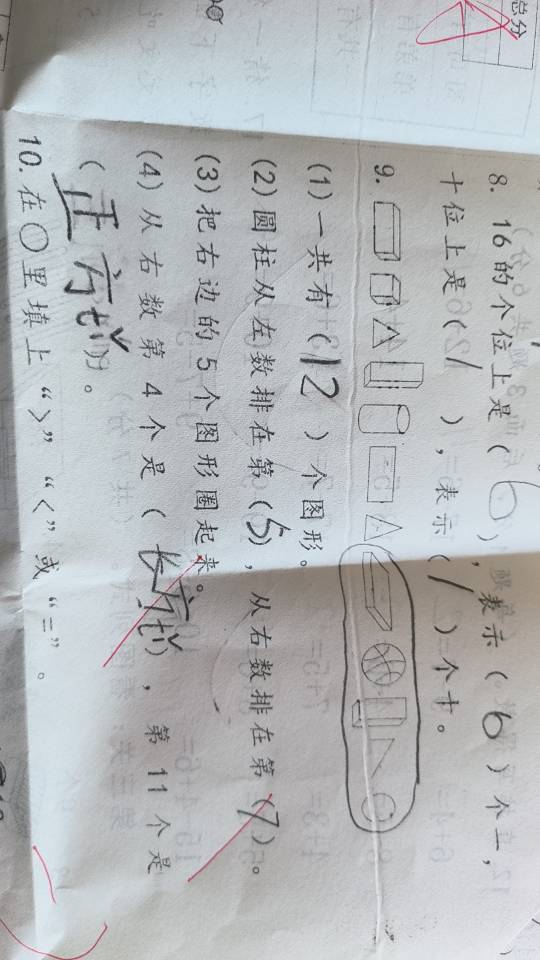 总分
8. 16的个位上是(6),表示(6)个一,
十位上是(1),表示(1)个十。
9.
(1)一共有(12)个图形。
(2)圆柱从左数排在第(5),从右数排在第(7)。
(3)把右边的5个图形圈起来。
(4)从右数第4个是(长方体),第11个是
(正方体)。
10.在○里填上“>”“<”或“=”。